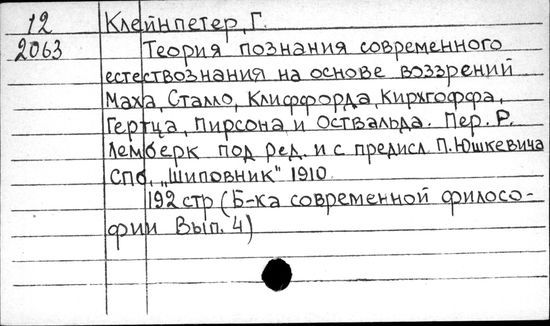 12 Клейнпетер, Г.
2063 Теория познания современного
естествознания на основе воззрений
Маха, Сталло, Клиффорда, Кирхгоффа,
Гертца, Пирсона и Оствальда. Пер. Р.
Лемберк под ред. и с предисл. П. Юшкевича
СПб, „Шиповник" 1910.
192 стр (Б-ка современной филосо-
фии Вып. 4)